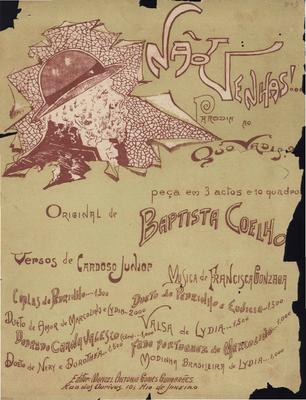 Não Venhas!...
Parodia ao
Quo Vadis?
peça em 3 actos e 10 quadros
Original de Baptista Coelho
Versos de Cardoso Junior
Musica de Francisca Gonzaga
Coplas de Pedrinho—1,500
Dueto de Pedrinho e Eudicia—1,500
Dueto de Amor de Marcondes e Lydia—2,000
Valsa de Lydia—1,500
Dobrado Carga Valesco—1,000
Fado Portuguez de Marcosinho—1,000
Dueto de Nery e Dorothea—1,500
Modinha Brasileira de Lydia—1,000
Editor: Manoel Antonio Gomes Guimarães
Rua dos Ourives, 10, Rio de Janeiro